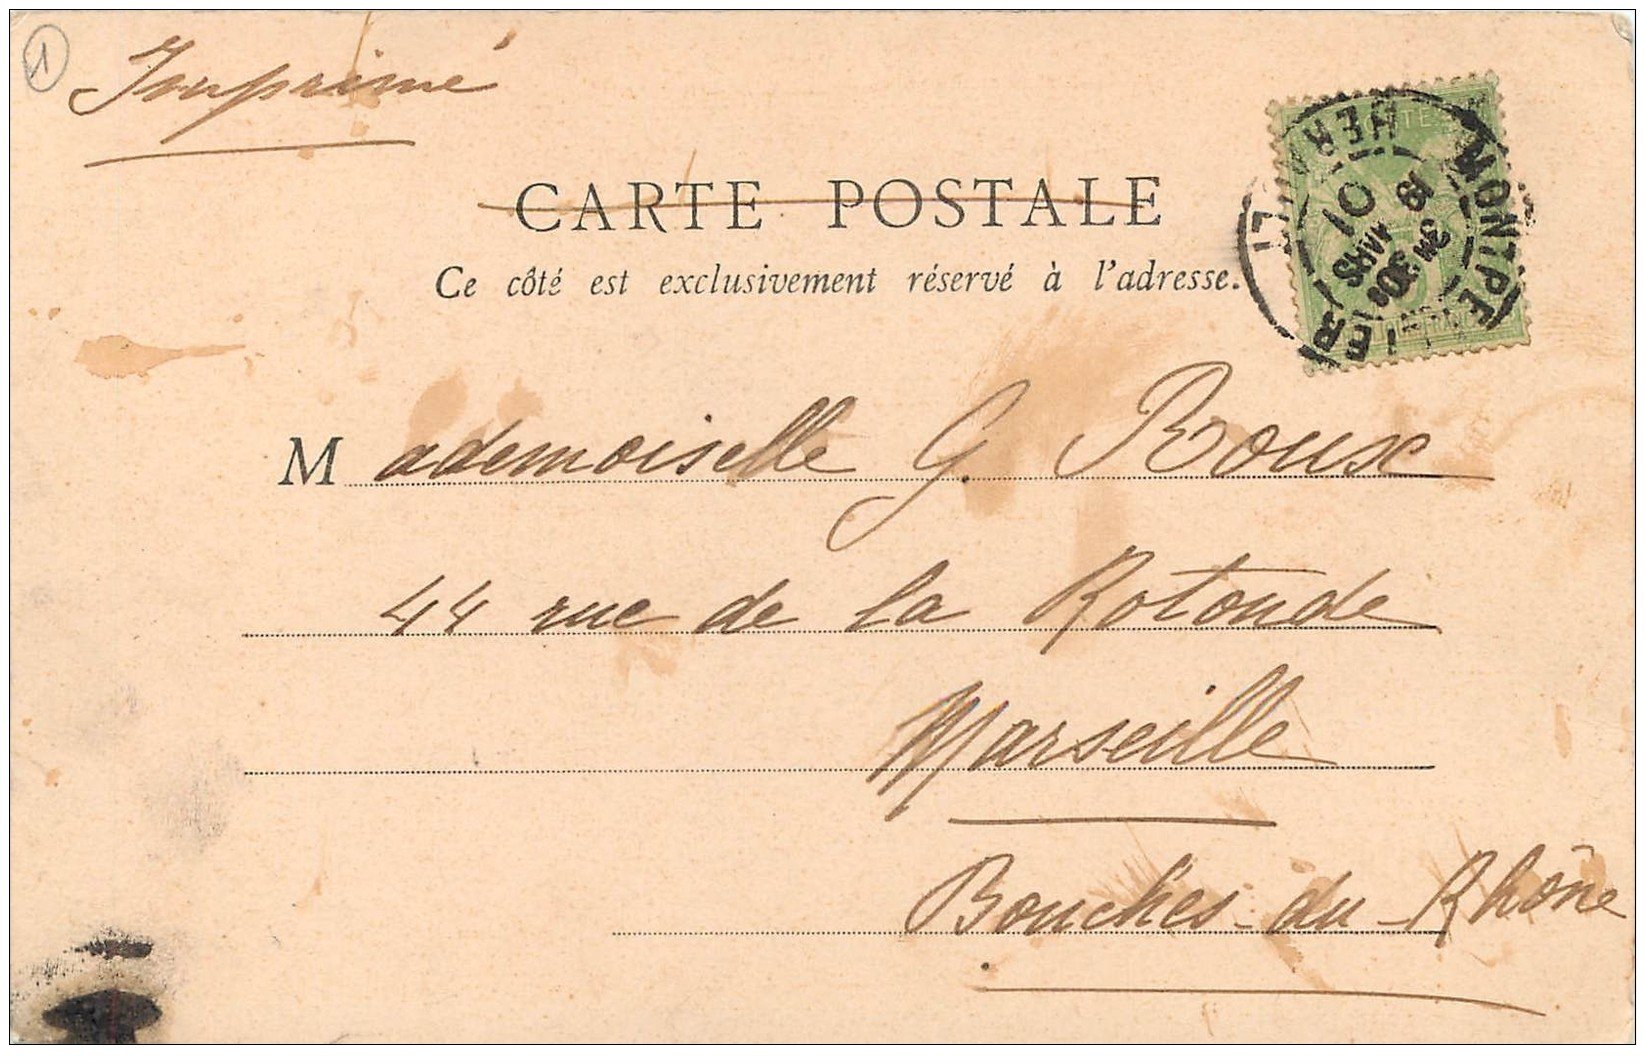 1
Imprimé
CARTE POSTALE
Ce côté est exclusivement réservé à l'adresse.
MONTPELLIER
HERAULT
19
30
MARS
01
Mademoiselle G. Roux
44 rue de la Rotonde
Marseille
Bouches-du-Rhône